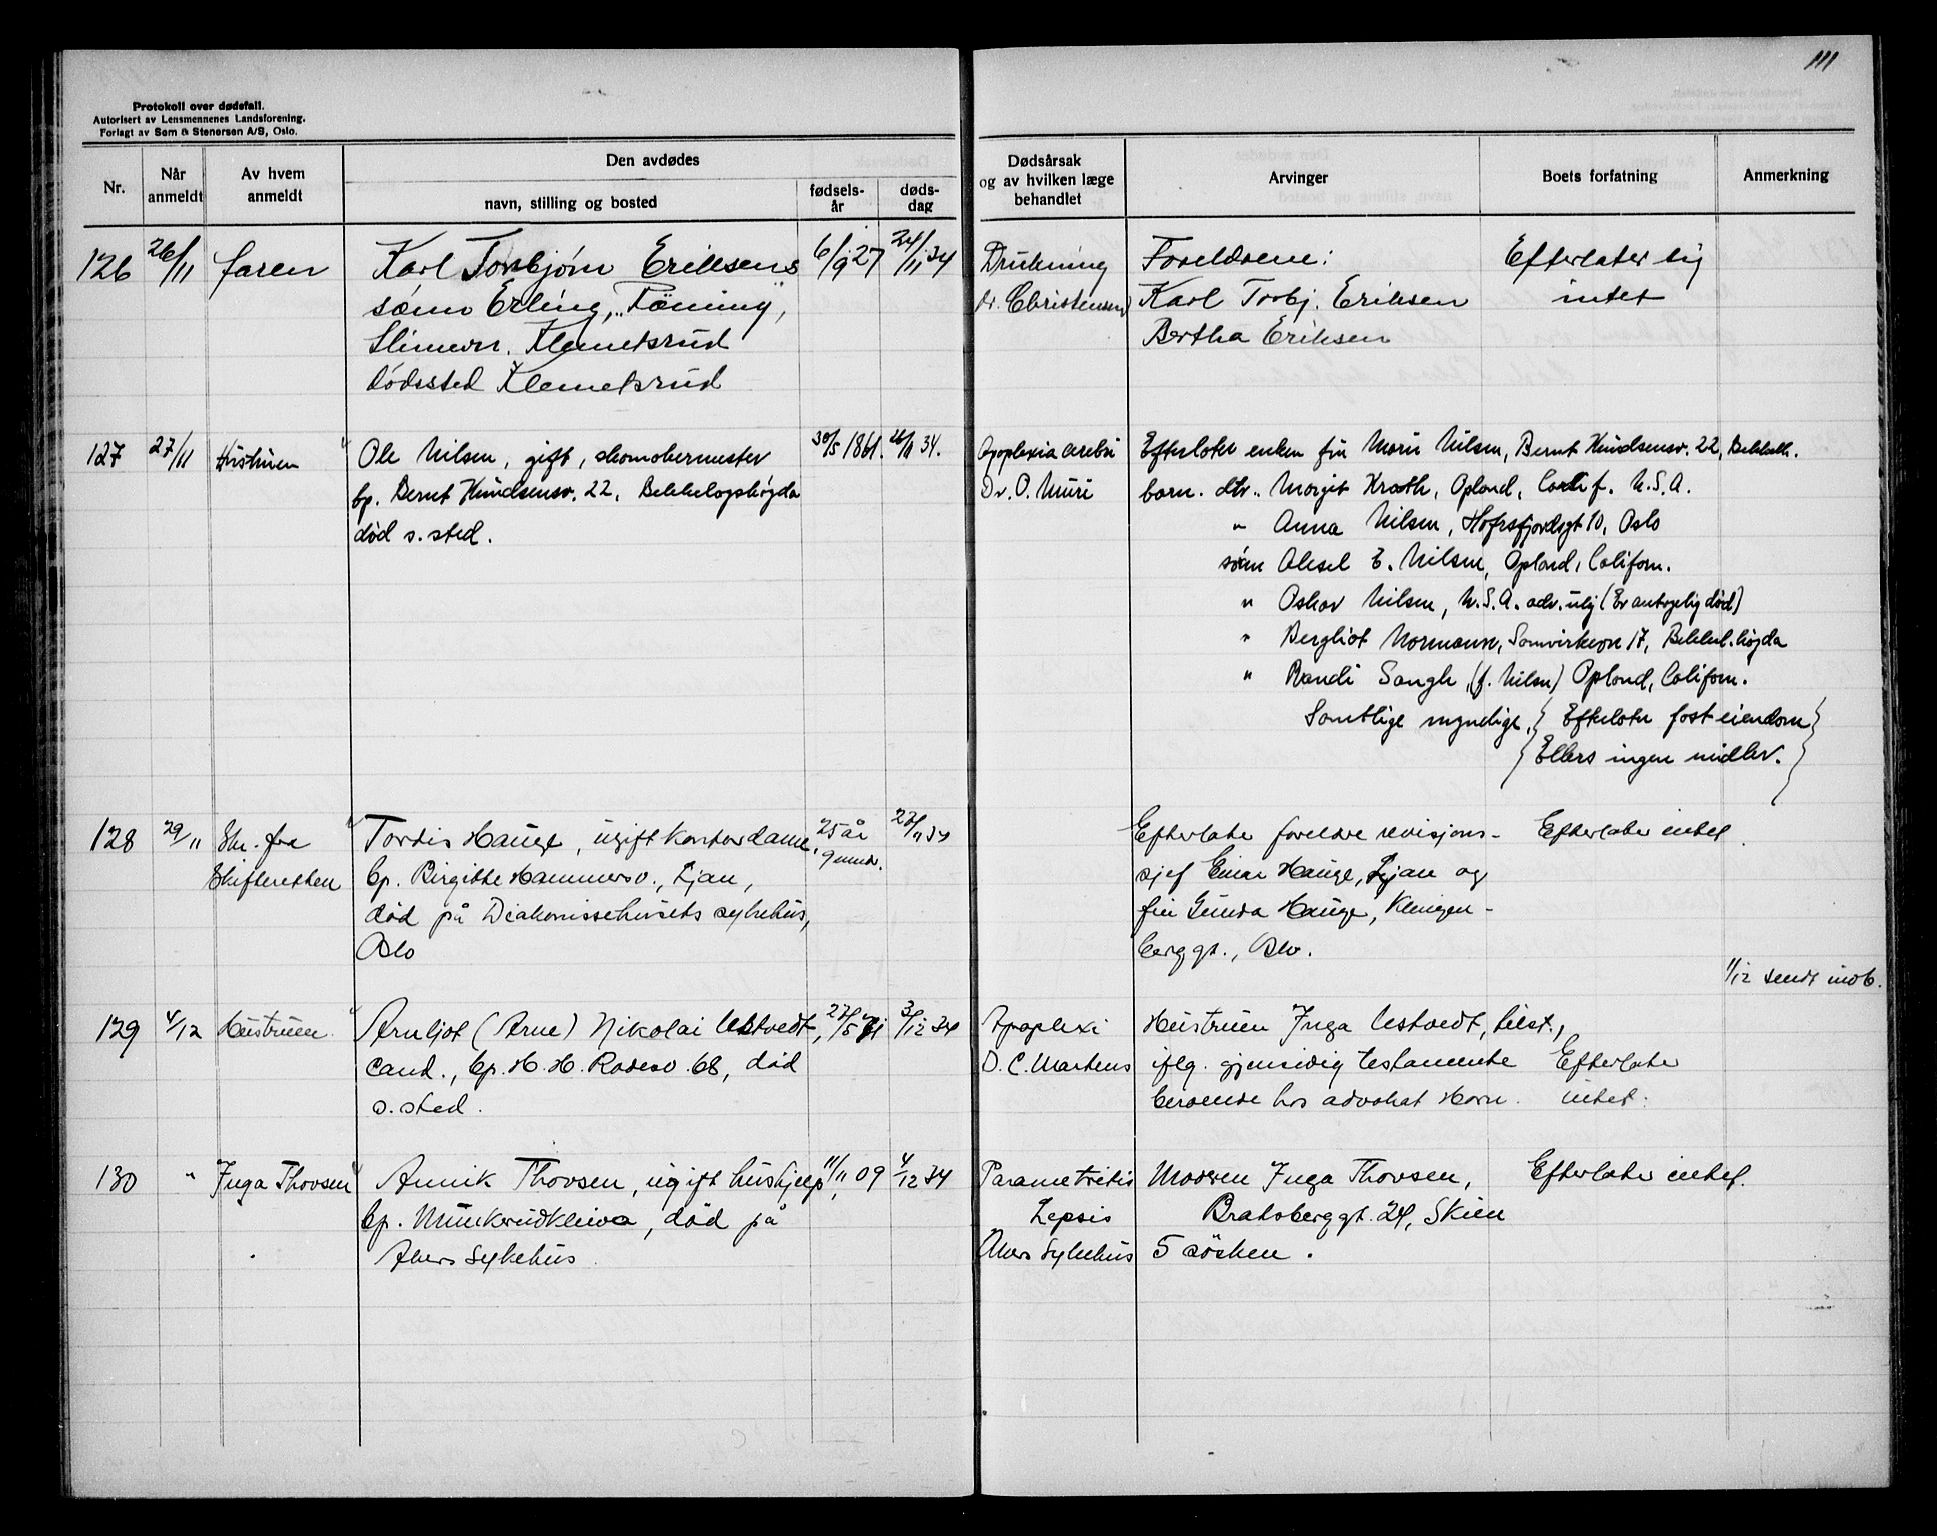 111
Protokoll over dødsfall.
Autorisert av Lensmennenes Landsforening.
Forlagt av Sem & Stenersen A/S, Oslo.
Nr.
Når anmeldt
Av hvem anmeldt
Den avdødes
navn, stilling og bosted
fødsels-år
døds-dag
Dødsårsak og av hvilken læge behandlet
Arvinger
Boets forfatning
Anmerkning
126 26/11 faren Karl Torbjørn Eriksens 6/9 27 24/11 34 Drukning Foreldrene: Efterlater sig
sønn Erling, Dr. Christensen Karl Torbj. Eriksen intet
Klemetsrud Bertha Eriksen
dødssted Klemetsrud
127 27/11 Hustruen Ole Nilsen, gift, skomakermester 30/5 1861. 26/11 34. Apoplexia cerebri Efterlater enken fru Marie Nilsen, Bernt Knudsensv. 22, Bekkelh.
bp. Bernt Knudsensv. 22, Bekkelagshøgda Dr. O. Muri barn. dtr. Margit Krath, Opland, Calif. U.S.A.
død s. sted. " Anna Nilsen, Hafrsfjordsgt 10, Oslo
sønn Aksel E. Nilsen, Opland, Californ.
" Oskar Nilsen, U.S.A. adr. ubj (Er antagelig død)
" Bergliot Normann, Samvirkevn 17, Bekkel.høgda
" Randi Sangh, (f. Nilsen) Opland, Californ.
Samtlige myndige. Efterlater fast eiendom
Ellers ingen midler.
128 29/11 Skr. fra Tordis Hauge, ugift kontordame, 25 år 27/11 34 Efterlater foreldre revisjons- Efterlater intet.
Skifteretten bp. Birgitte Hammersv., Ljan, 9 mndr. sjef Einar Hauge, Ljan og
død på Diakonissehusets sykehus, fru Gunda Hauge, Klingen-
Oslo berggt., Oslo.
1/12 sendt innb.
129 4/12 Hustruen Arnljot (Arne) Nikolai Ustvedt, 27/5 71 3/12 34 Apoplexi Hustruen Inga Ustvedt, tilst.,
cand., bp. H. H. Rodesv. 68, død D. C. Martens iflg. gjensidig testamente Efterlater
s. sted. beroende hos advokat Horn. intet.
130 " Inga Thovsen Annik Thovsen, ugift hushjelp, 11/11 09 4/12 34 Parametritis Moren Inga Thovsen, Efterlater intet.
bp. Munkerudkleiva, død på Sepsis Bratsberggt. 24, Skien
Akers Sykehus Akers Sykehus 5 søsken.